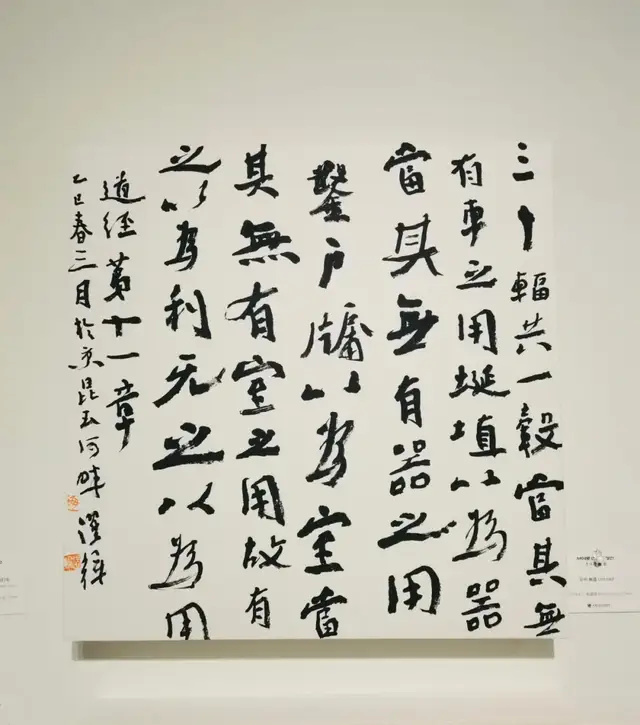 三十輻共一轂當其無
有車之用埏埴以為器
當其無有器之用
鑿戶牖以為室當
其無有室之用故有
之以為利无之以為用
道經第十一章
乙巳春三月於京昆玉河畔